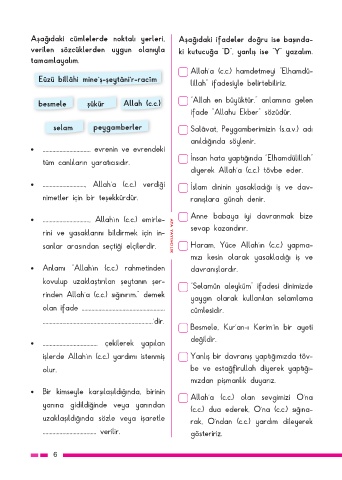 Aşağıdaki cümlelerde noktalı yerleri,
verilen sözcüklerden uygun olanıyla
tamamlayalım.
Eûzü billâhi mine'ş-şeytâni'r-racîm
besmele
şükür
Allah (c.c.)
selam
peygamberler
• .......................... evrenin ve evrendeki
tüm canlıların yaratıcısıdır.
• .......................... Allah'a (c.c.) verdiği
nimetler için bir teşekkürdür.
• .......................... Allah'ın (c.c.) emirle-
rini ve yasaklarını bildirmek için in-
sanlar arasından seçtiği elçilerdir.
• Anlamı "Allah'ın (c.c.) rahmetinden
kovulup uzaklaştırılan şeytanın şer-
rinden Allah'a (c.c.) sığınırım." demek
olan ifade ..........................
.......................... 'dir.
• .......................... çekilerek yapılan
işlerde Allah'ın (c.c.) yardımı istenmiş
olur.
• Bir kimseyle karşılaşıldığında, birinin
yanına gidildiğinde veya yanından
uzaklaşıldığında sözle veya işaretle
.......................... verilir.
6
ATA YAYINCILIK
Aşağıdaki ifadeler doğru ise başında-
ki kutucuğa "D", yanlış ise "Y" yazalım.
Allah'a (c.c.) hamdetmeyi "Elhamdü-
lillah" ifadesiyle belirtebiliriz.
"Allah en büyüktür." anlamına gelen
ifade "Allahu Ekber" sözüdür.
Salâvat, Peygamberimizin (s.a.v.) adı
anıldığında söylenir.
İnsan hata yaptığında "Elhamdülillah"
diyerek Allah'a (c.c.) tövbe eder.
İslam dininin yasakladığı iş ve dav-
ranışlara günah denir.
Anne babaya iyi davranmak bize
sevap kazandırır.
Haram, Yüce Allah'ın (c.c.) yapma-
mızı kesin olarak yasakladığı iş ve
davranışlardır.
"Selamün aleyküm" ifadesi dinimizde
yaygın olarak kullanılan selamlama
cümlesidir.
Besmele, Kur'an-ı Kerim'in bir ayeti
değildir.
Yanlış bir davranış yaptığımızda töv-
be ve estağfirullah diyerek yaptığı-
mızdan pişmanlık duyarız.
Allah'a (c.c.) olan sevgimizi O'na
(c.c.) dua ederek, O'na (c.c.) sığına-
rak, O'ndan (c.c.) yardım dileyerek
gösteririz.